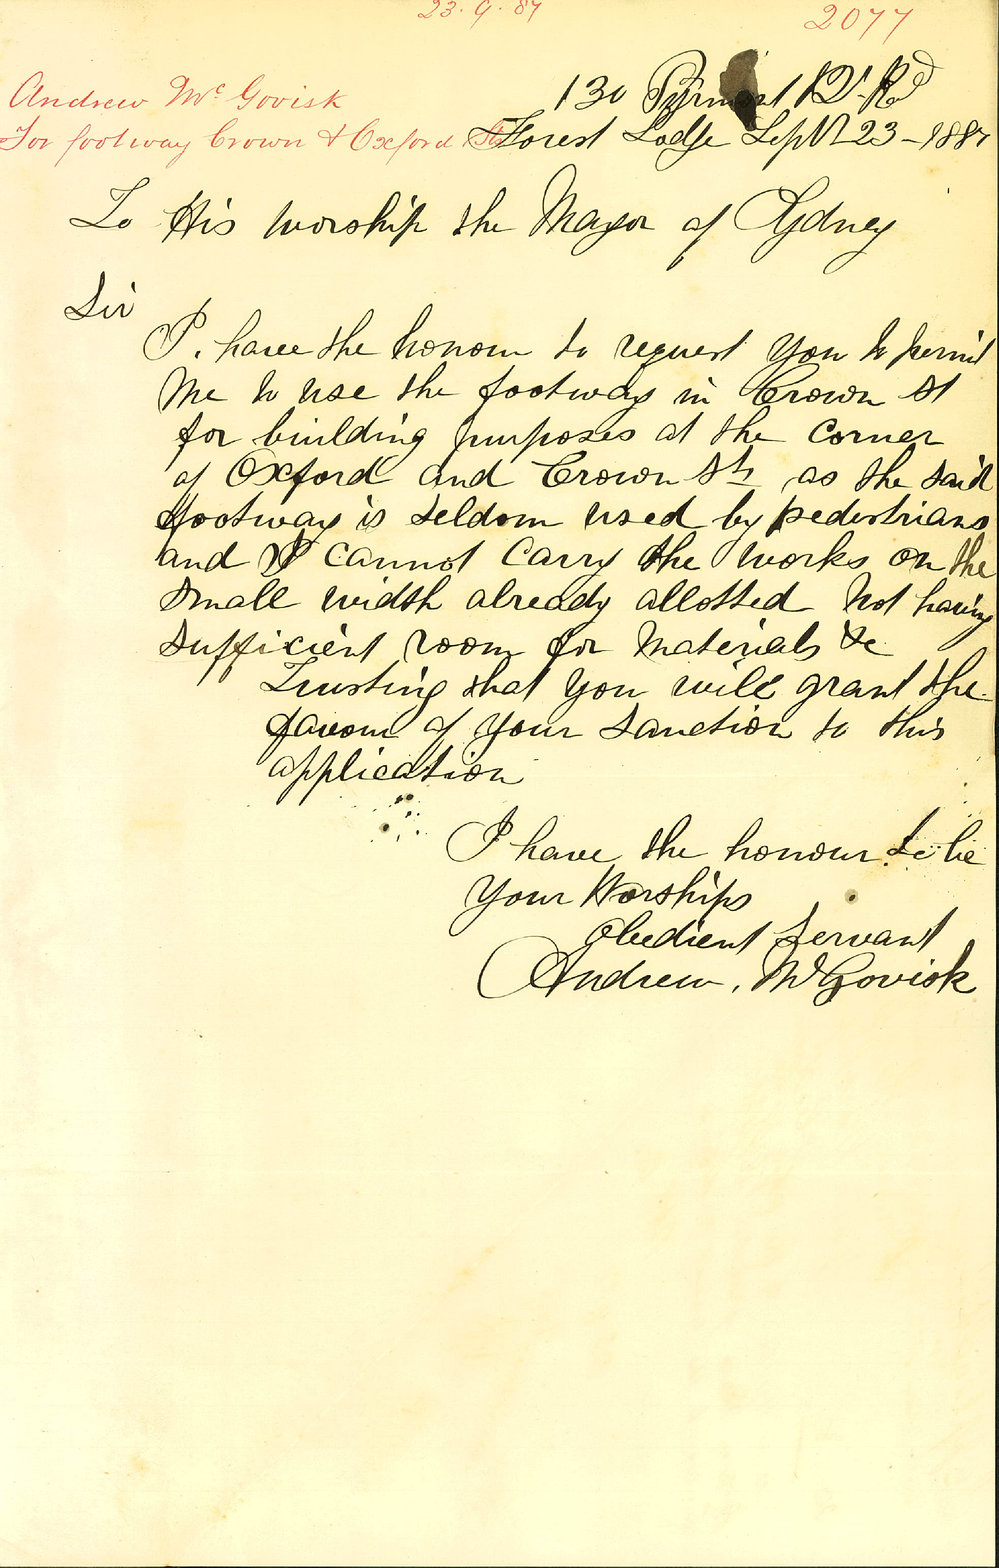 23. 9. 87
2077
Andrew McGovisk
For footway Crown & Oxford Sts
130 Pyrmont Bd. Rd
Forest Lodge Sept 23 - 1887
To His Worship the Mayor of Sydney
Sir
I. have the honour to request you to permit
me to use the footway in Crown St
for building purposes at the corner
of Oxford and Crown Sts, as the said
footway is seldom used by pedestrians
and I cannot carry the works on the
small width already allotted not having
sufficient room for materials &c
Trusting that you will grant the
favour of your sanction to this
application
I have the honour to be
Your Worships
obedient servant
Andrew. McGovisk